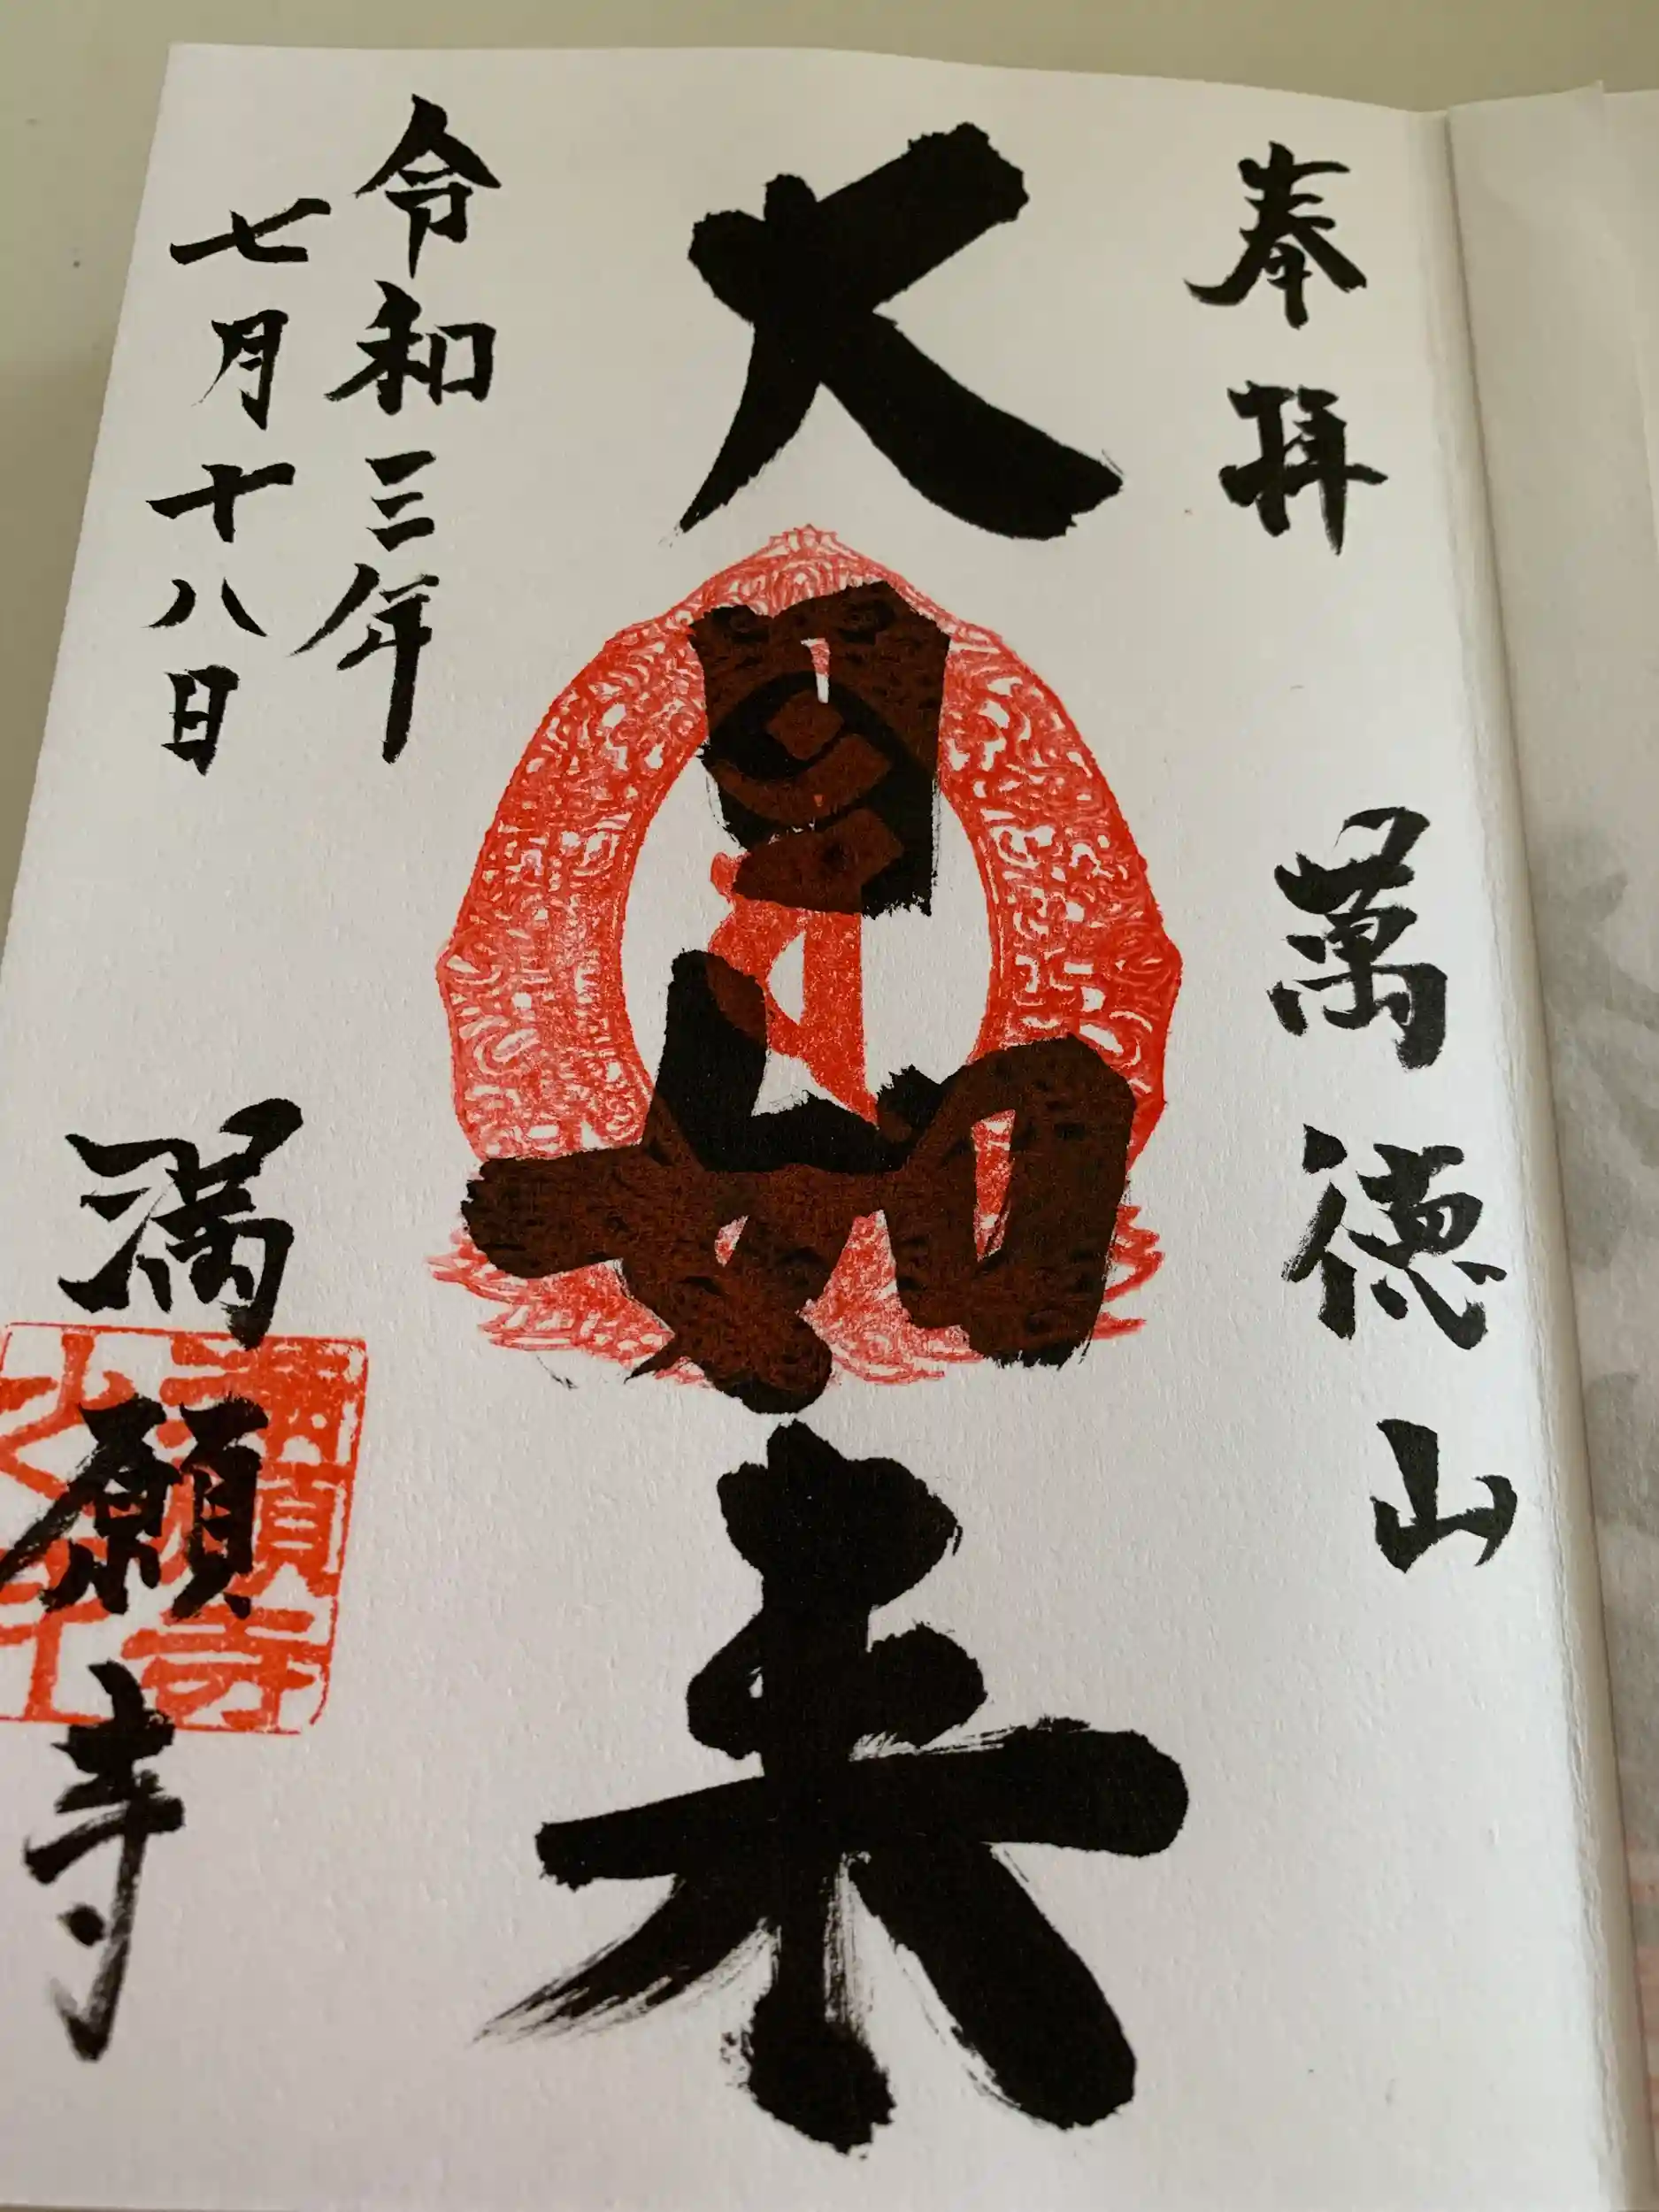 奉拝
萬徳山
大日如来
令和三年
七月十八日
満願寺